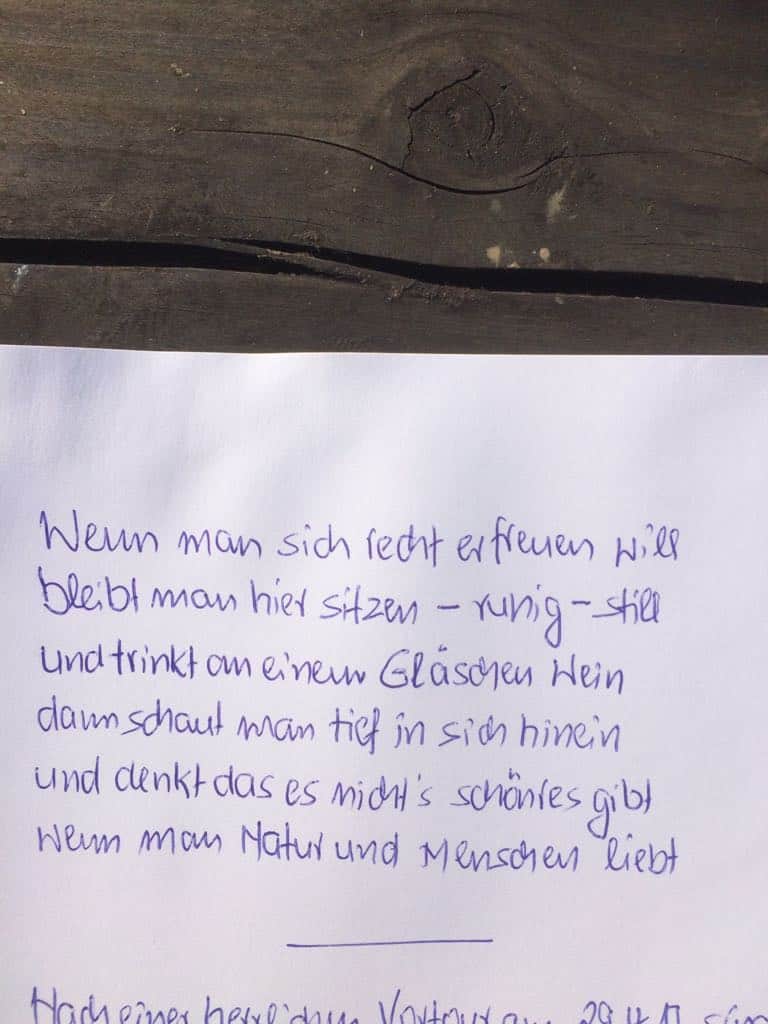 Wenn man sich recht erfreuen will
bleibt man hier sitzen – ruhig – still
und trinkt an einem Gläschen Wein
dann schaut man tief in sich hinein
und denkt das es nicht's schön'res gibt
wenn man Natur und Menschen liebt
Nach einer herrlichen